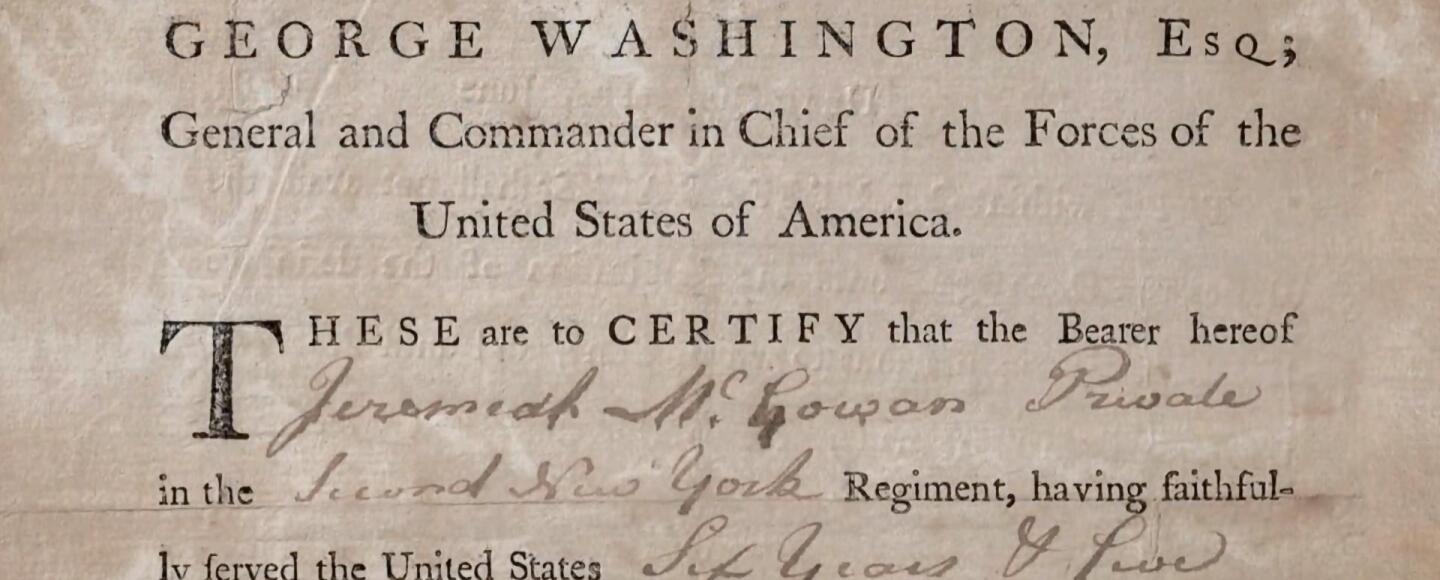 GEORGE WASHINGTON, Esq;
General and Commander in Chief of the Forces of the
United States of America.
THESE are to CERTIFY that the Bearer hereof
Jeremiah McGowan Private
in the Second New York Regiment, having faithful-
ly ſerved the United States Six Years & Five